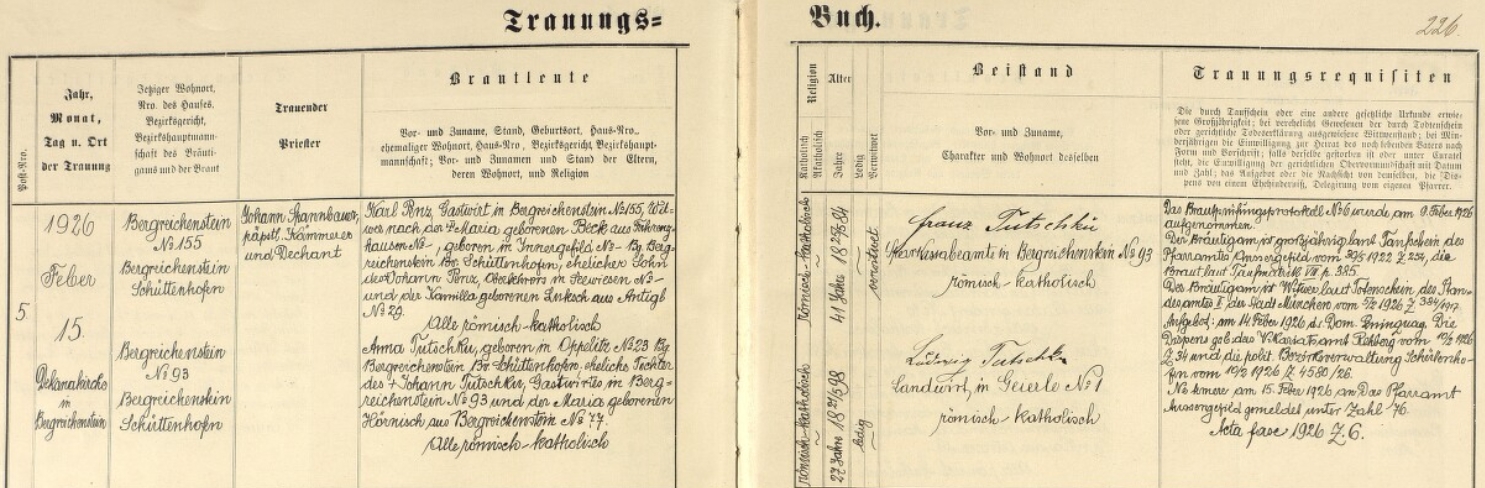 Trauungs=
Buch.
226.
Post-Nro.
Jahr,
Monat,
Tag u. Ort
der Trauung
Jetziger Wohnort,
Nro. des Hauses,
Bezirksgericht,
Bezirkshauptmann-
schaft des Bräuti-
gams und der Braut
Trauender
Priester
Brautleute
Vor- und Zuname, Stand, Geburtsort, Haus-Nro.,
ehemaliger Wohnort, Haus-Nro, Bezirksgericht, Bezirkshaupt-
mannschaft; Vor- und Zunamen und Stand der Eltern,
deren Wohnort, und Religion
5.
1926
Feber
15.
Dekanalkirche
in
Bergreichenstein
Bergreichenstein
No 155
Bergreichenstein
Schüttenhofen
Bergreichenstein
No 93
Bergreichenstein
Schüttenhofen
Johann
päpstl. Kämmerer
und Dechant
Karl Penz, Gastwirt in Bergreichenstein No 155, Wit-
wer nach der Maria geborenen Beck aus
hausen No -, geboren in Innergefild No - Bg. Berg-
reichenstein Br. Schüttenhofen, ehelicher Sohn
des Johann Penz, in Seewiesen No -
und der Kamilla geborenen Luksch aus Antigl
No 29.
Alle römisch-katholisch
Anna Tutschku, geboren in Oppelitz No 23 Bg
Bergreichenstein Br. Schüttenhofen, eheliche Tochter
des + Johann Tutschku, Gastwirtes in Berg=
reichenstein No 93 und der Maria geborenen
Hörnisch aus Bergreichenstein No 77.
Alle römisch-katholisch
Religion
Katholisch
Akatholisch
Alter
Jahre
Ledig
Verwitwet
Beistand
Vor- und Zuname,
Charakter und Wohnort desselben
Trauungsrequisiten
Die durch Taufschein oder eine andere gesetzliche Urkunde erwie-
sene Großjährigkeit; bei verehelicht Gewesenen der durch Todtenschein
oder gerichtliche Todeserklärung ausgewiesene Wittwenstand; bei Min-
derjährigen die Einwilligung zur Heirat des noch lebenden Vaters nach
Form und Vorschrift; falls derselbe gestorben ist oder unter Curatel
steht, die Einwilligung der gerichtlichen Obervormundschaft mit Datum
und Zahl; das Aufgebot oder die Nachsicht von demselben, die Dis-
pens von einem Ehehindernisse, Delegirung vom eigenen Pfarrer.
römisch-katholisch
41 Jahre 18 25/5 84
verwitwet
römisch-katholisch
27 Jahre 18 21/5 98
ledig
Franz Tutschku
Sparkassabeamte in Bergreichenstein No 93
römisch-katholisch
Ludwig Tutschku
Landwirt, in Geierle No 1
römisch-katholisch
Das Brautprüfungsprotokoll No 6 wurde am 9. Feber 1926
aufgenommen.
Der Bräutigam ist großjährig laut Taufschein des
Pfarramtes Aussergefild vom 30/5 1922 Z 254, die
Braut laut Taufmatrik VII p. 385.
Der Bräutigam ist Witwer laut Totenschein des Stan-
desamtes I der Stadt München vom 5/2 1926 Z 384/1917.
Aufgebot: am 14. Feber 1926 d. i. Dom. Quinquag. Die
Dispens gab das Vikariatsamt Rehberg vom 10/2 1926
Z 34 und die polit. Bezirksverwaltung Schüttenho-
fen vom 10/2 1926 Z. 4580/26.
No temere am 15. Feber 1926 an Das Pfarramt
Aussergefild gemeldet unter Zahl 76.
Acta fasc 1926 Z. 6.